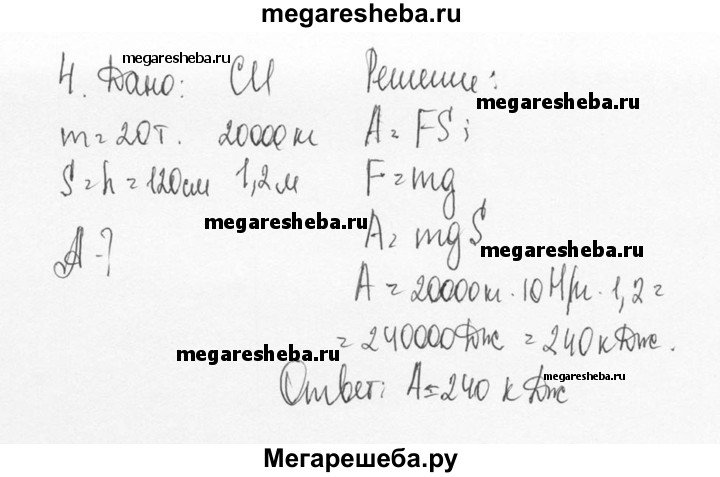 megaresheba.ru
megaresheba.ru
4. Дано: СИ Решение:
megaresheba.ru
m=20т. 20000кг A=FS;
S=h=120см 1,2м F=mg
megaresheba.ru
A-? A=mgS
megaresheba.ru
A=20000кг·10Н/кг·1,2=
=240000Дж=240кДж.
megaresheba.ru
megaresheba.ru
Ответ: A=240 кДж
Мегарешеба.ру